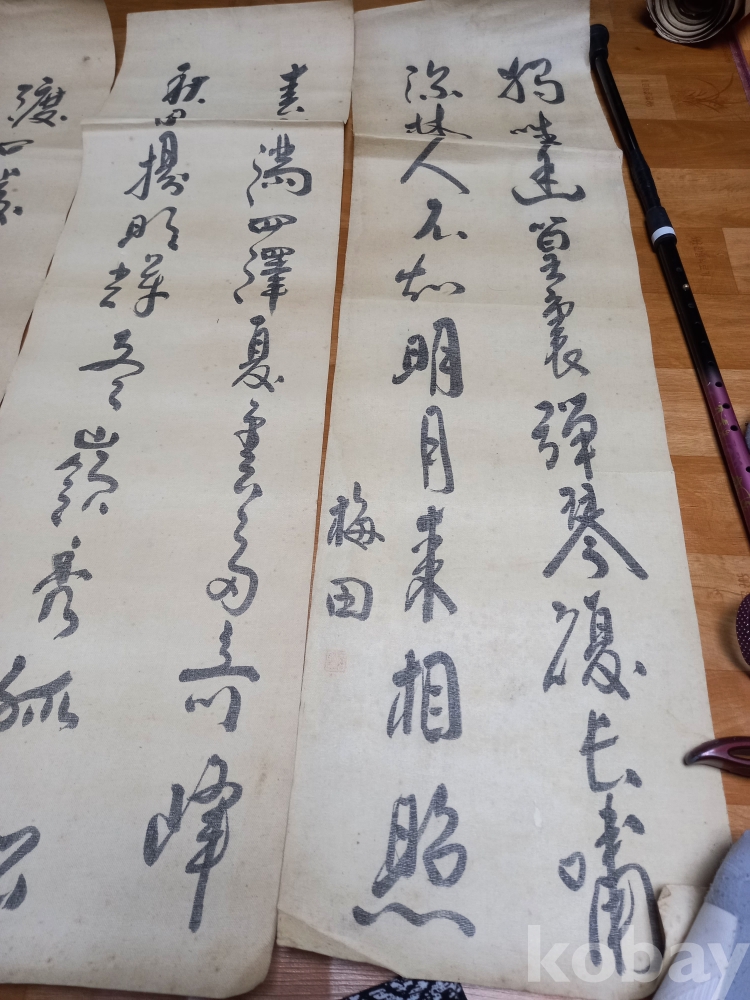 獨坐幽篁裏彈琴復長嘯
深林人不知明月來相照
梅田
春滿四澤夏雲多奇峰
秋月揚明輝冬嶺秀孤
渡
kobay